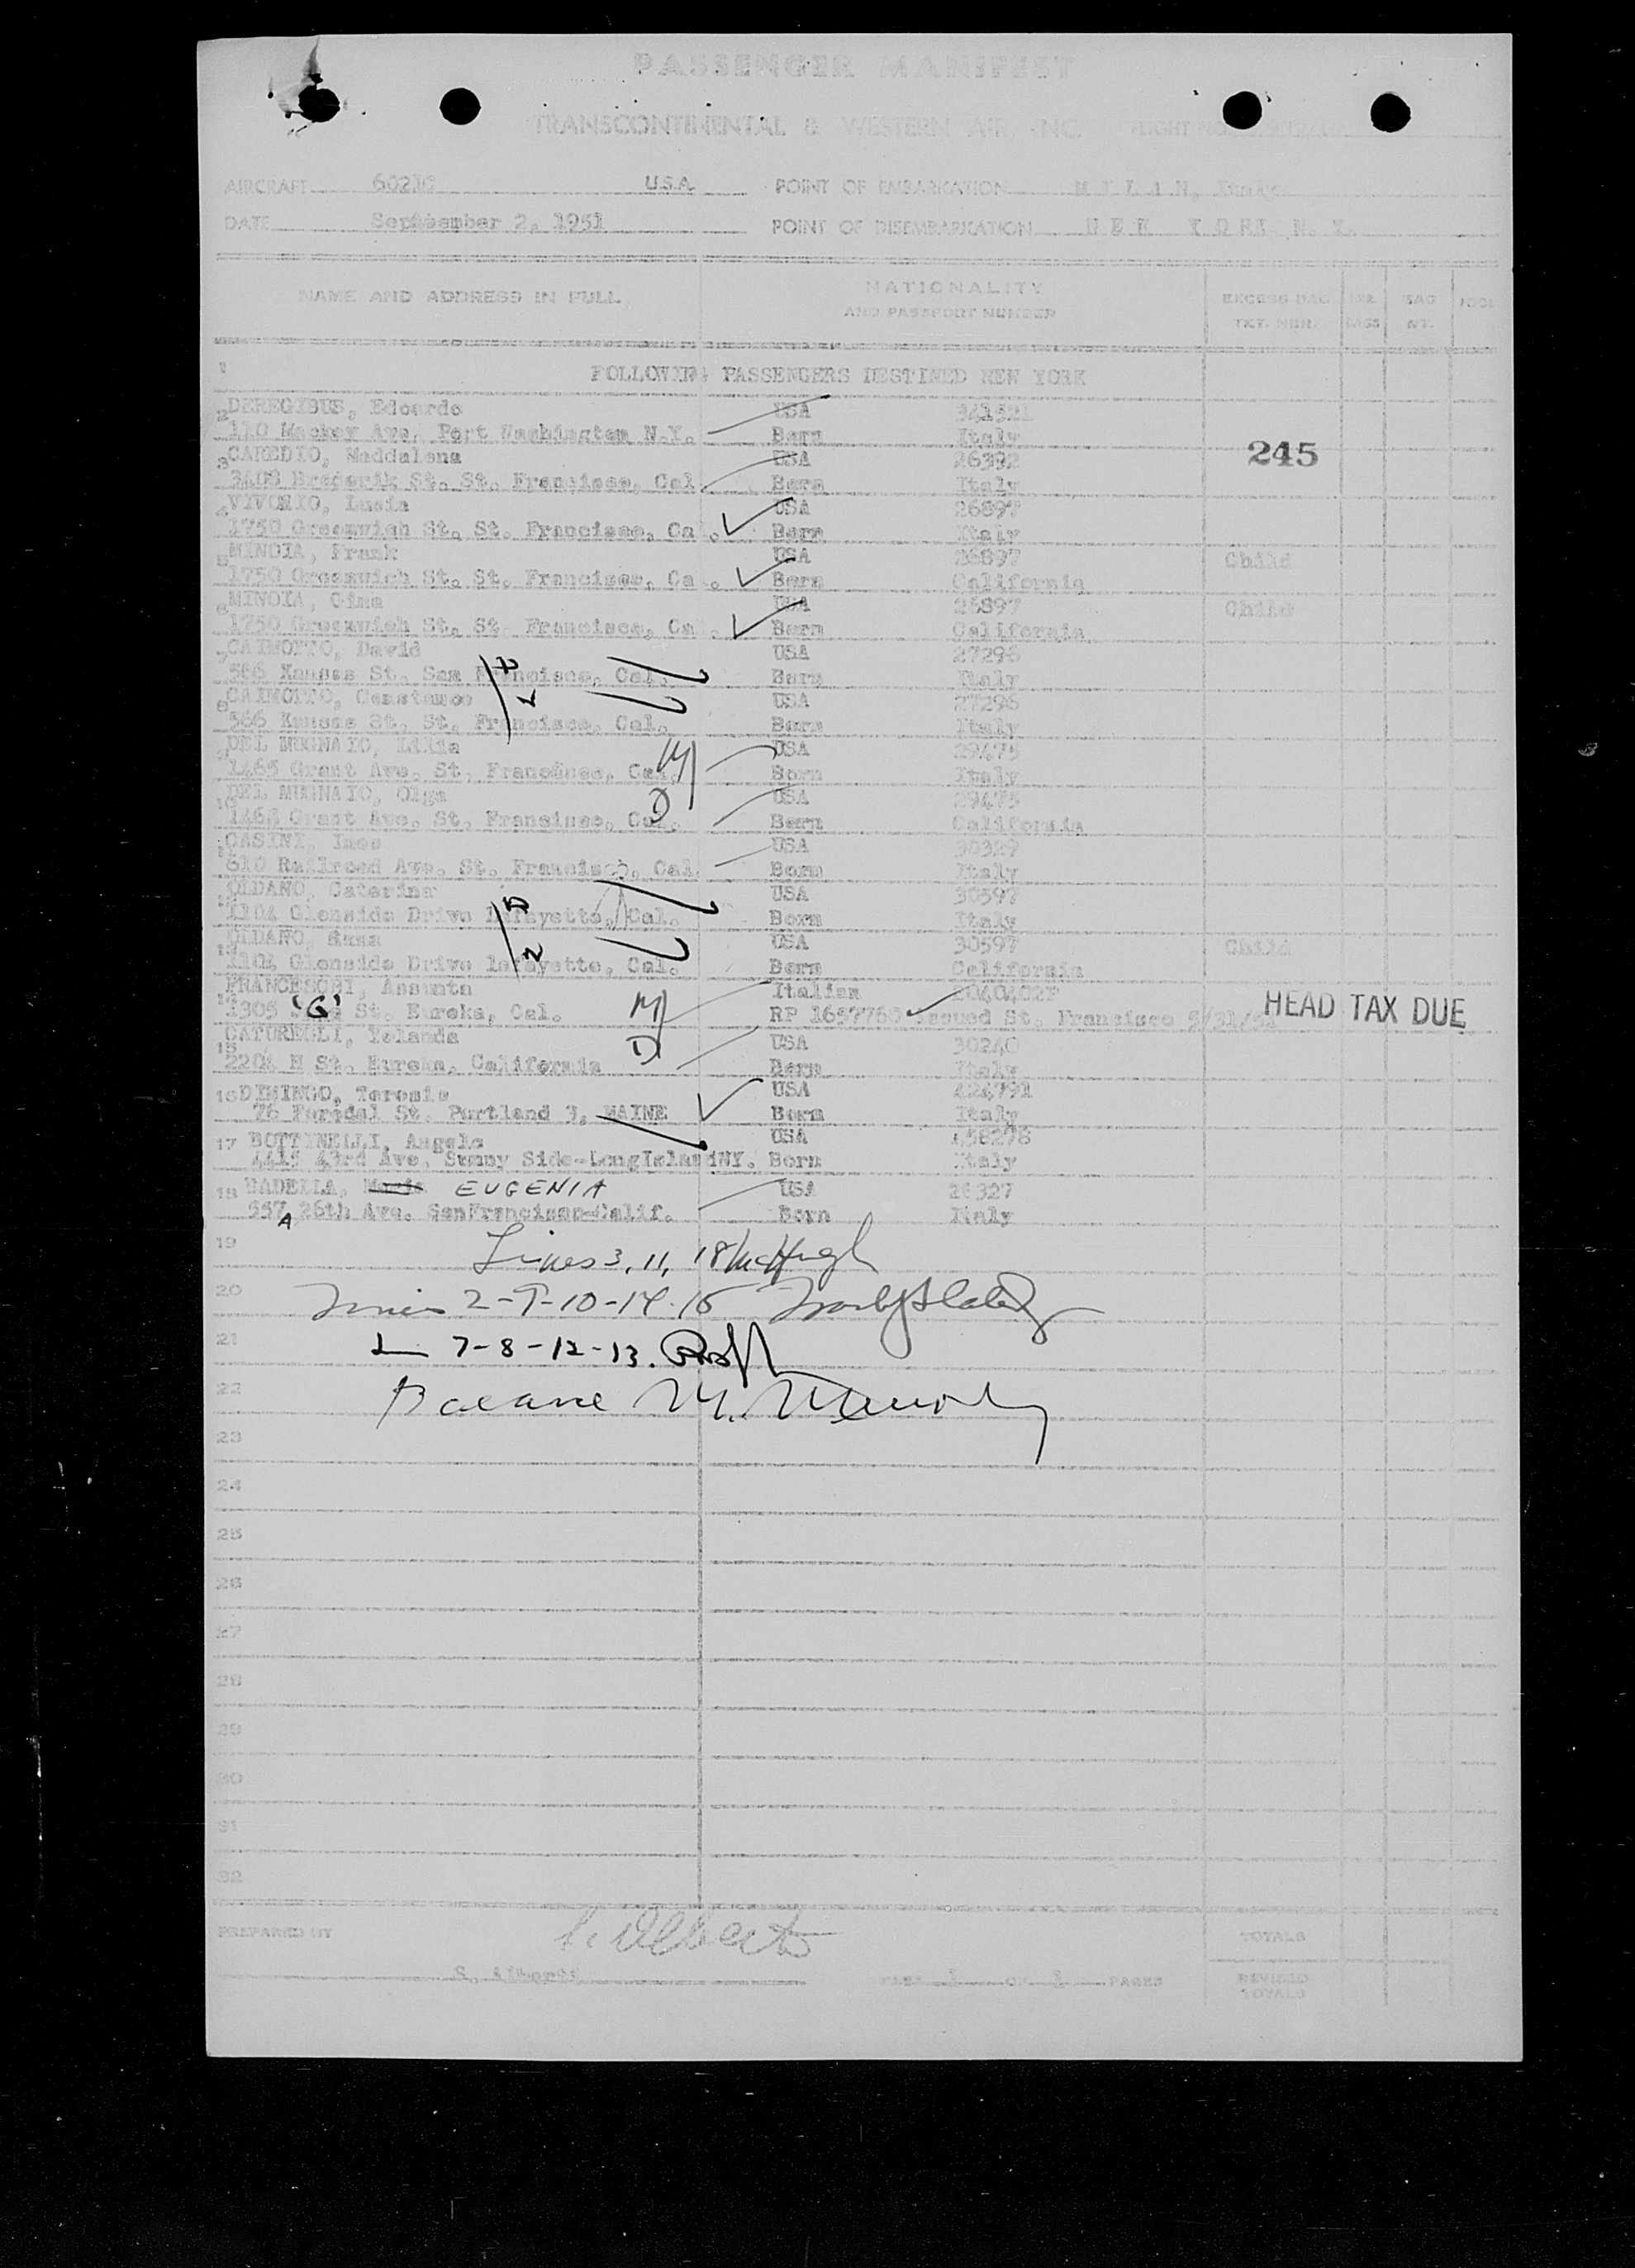 PASSENGER MANIFEST
TRANSCONTINENTAL & WESTERN AIR, INC. FLIGHT NO.
AIRCRAFT U.S.A. POINT OF EMBARKATION M I L A N, Italy
DATE September 2, 1951 POINT OF DISEMBARKATION N E W Y O R K N. Y.
NAME AND ADDRESS IN FULL NATIONALITY AND PASSPORT NUMBER EXCESS BAG TKT. NBR. BAG WT.
1 FOLLOWING PASSENGERS DESTINED NEW YORK
2 DEREGIBUS, Edoardo USA 341521
110 Mackey Ave. Port Washington N.Y. Born Italy
245
3 CAREDIO, Maddalena USA 26392
St. St. Francisco, Cal Born Italy
4 Lucia USA 26897
1750 Greenwich St. St. Francisco, Ca. Born Italy
5 MINOIA, Frank USA 26897 Child
1750 Greenwich St. St. Francisco, Ca. Born California
6 MINOIA, Gina USA 26897 Child
1750 Greenwich St. St. Francisco, Ca. Born California
7 CAINOTTO, David USA 27296
566 Kansas St. San Francisco, Cal. Born Italy
8 CAINOTTO, Constance USA 27296
566 Kansas St. St. Francisco, Cal. Born Italy
9 DEL MUGNAIO, Lilia USA 29475
1465 Grant Ave. St. Francisco, Cal. Born Italy
10 DEL MUGNAIO, Olga USA 29475
Grant Ave. St. Francisco, Cal. Born California
11 CASINI, Ines USA 30329
610 Railroad Ave. St. Francisco, Cal. Born Italy
12 OLDANO, Caterina USA 30597
1104 Glenside Drive lafayette, Cal. Born Italy
13 OLDANO, USA 30597 Child
1104 Glenside Drive lafayette, Cal. Born California
14 FRANCESCHI, Assunta Italian
1305 'G' St. Eureka, Cal. RP issued St. Francisco HEAD TAX DUE
15 CATUREGLI, Yolanda USA 30240
2204 H St. Eureka, California Born Italy
16 Teresia USA 424791
76 St. Portland 3, MAINE Born Italy
17 BOTTINELLI, Angelo USA 458278
4415 43rd Ave. Sunny Side-LongIslandNY. Born Italy
18 BADELLA, Maria EUGENIA USA 26327
557 A 26th Ave. SanFrancisco-Calif. Born Italy
19 Lines 3, 11, 18 McHugh
20 Lines 2-9-10-14-15
21 L 7-8-12-13.
22 Balance M.
23
24
25
26
27
28
29
30
31
32
PREPARED BY S. Alberti TOTALS
S. Alberti PAGE 1 OF 1 PAGES REVISED TOTALS